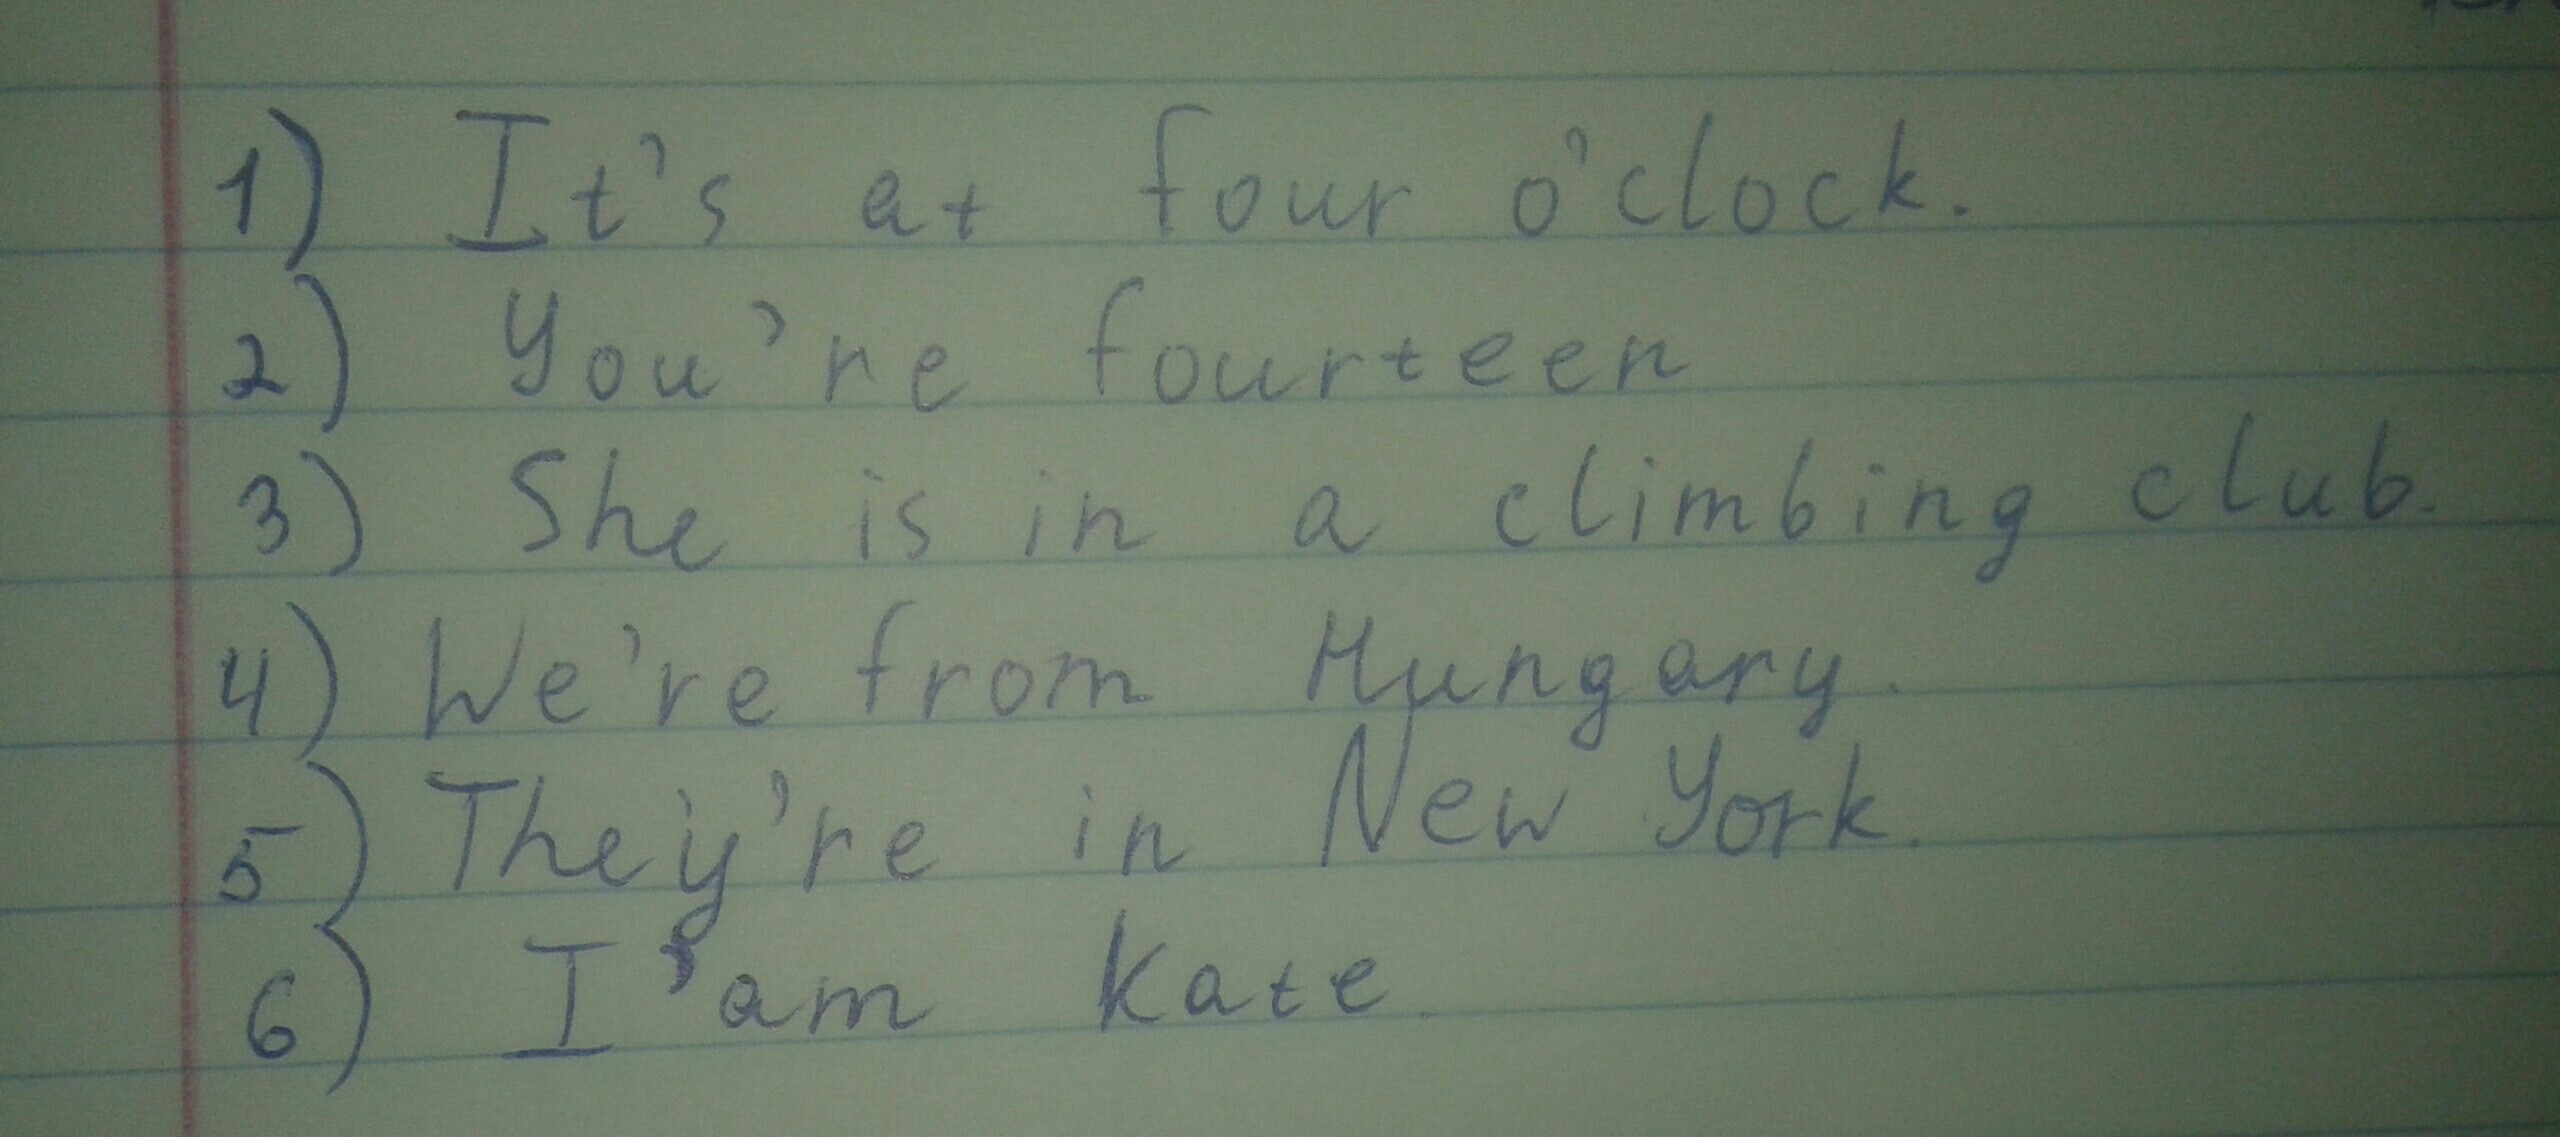 1) It's at four o'clock.
2) You're fourteen
3) She is in a climbing club.
4) We're from Hungary.
5) They're in New York.
6) I'am Kate.